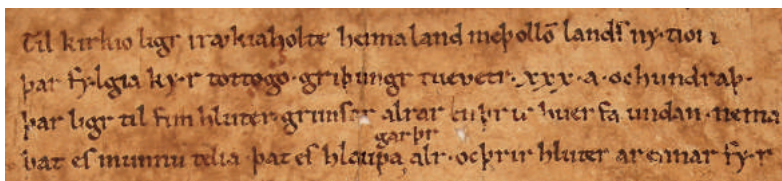 Til kirkio ligr i rækiaholte heimaland meþ ollō landſ ny·tioi ı
þar fy·lgia ky·r tottogo· griþungr tuevetr· xxx· a· oc hundraþ·
þar ligr til fim hluter· grimſár allrar en þrir huerfa undan· nema
garþr
þat es munnu telia· þat es hlaupa alr· oc þrir hluter arennar fy·r